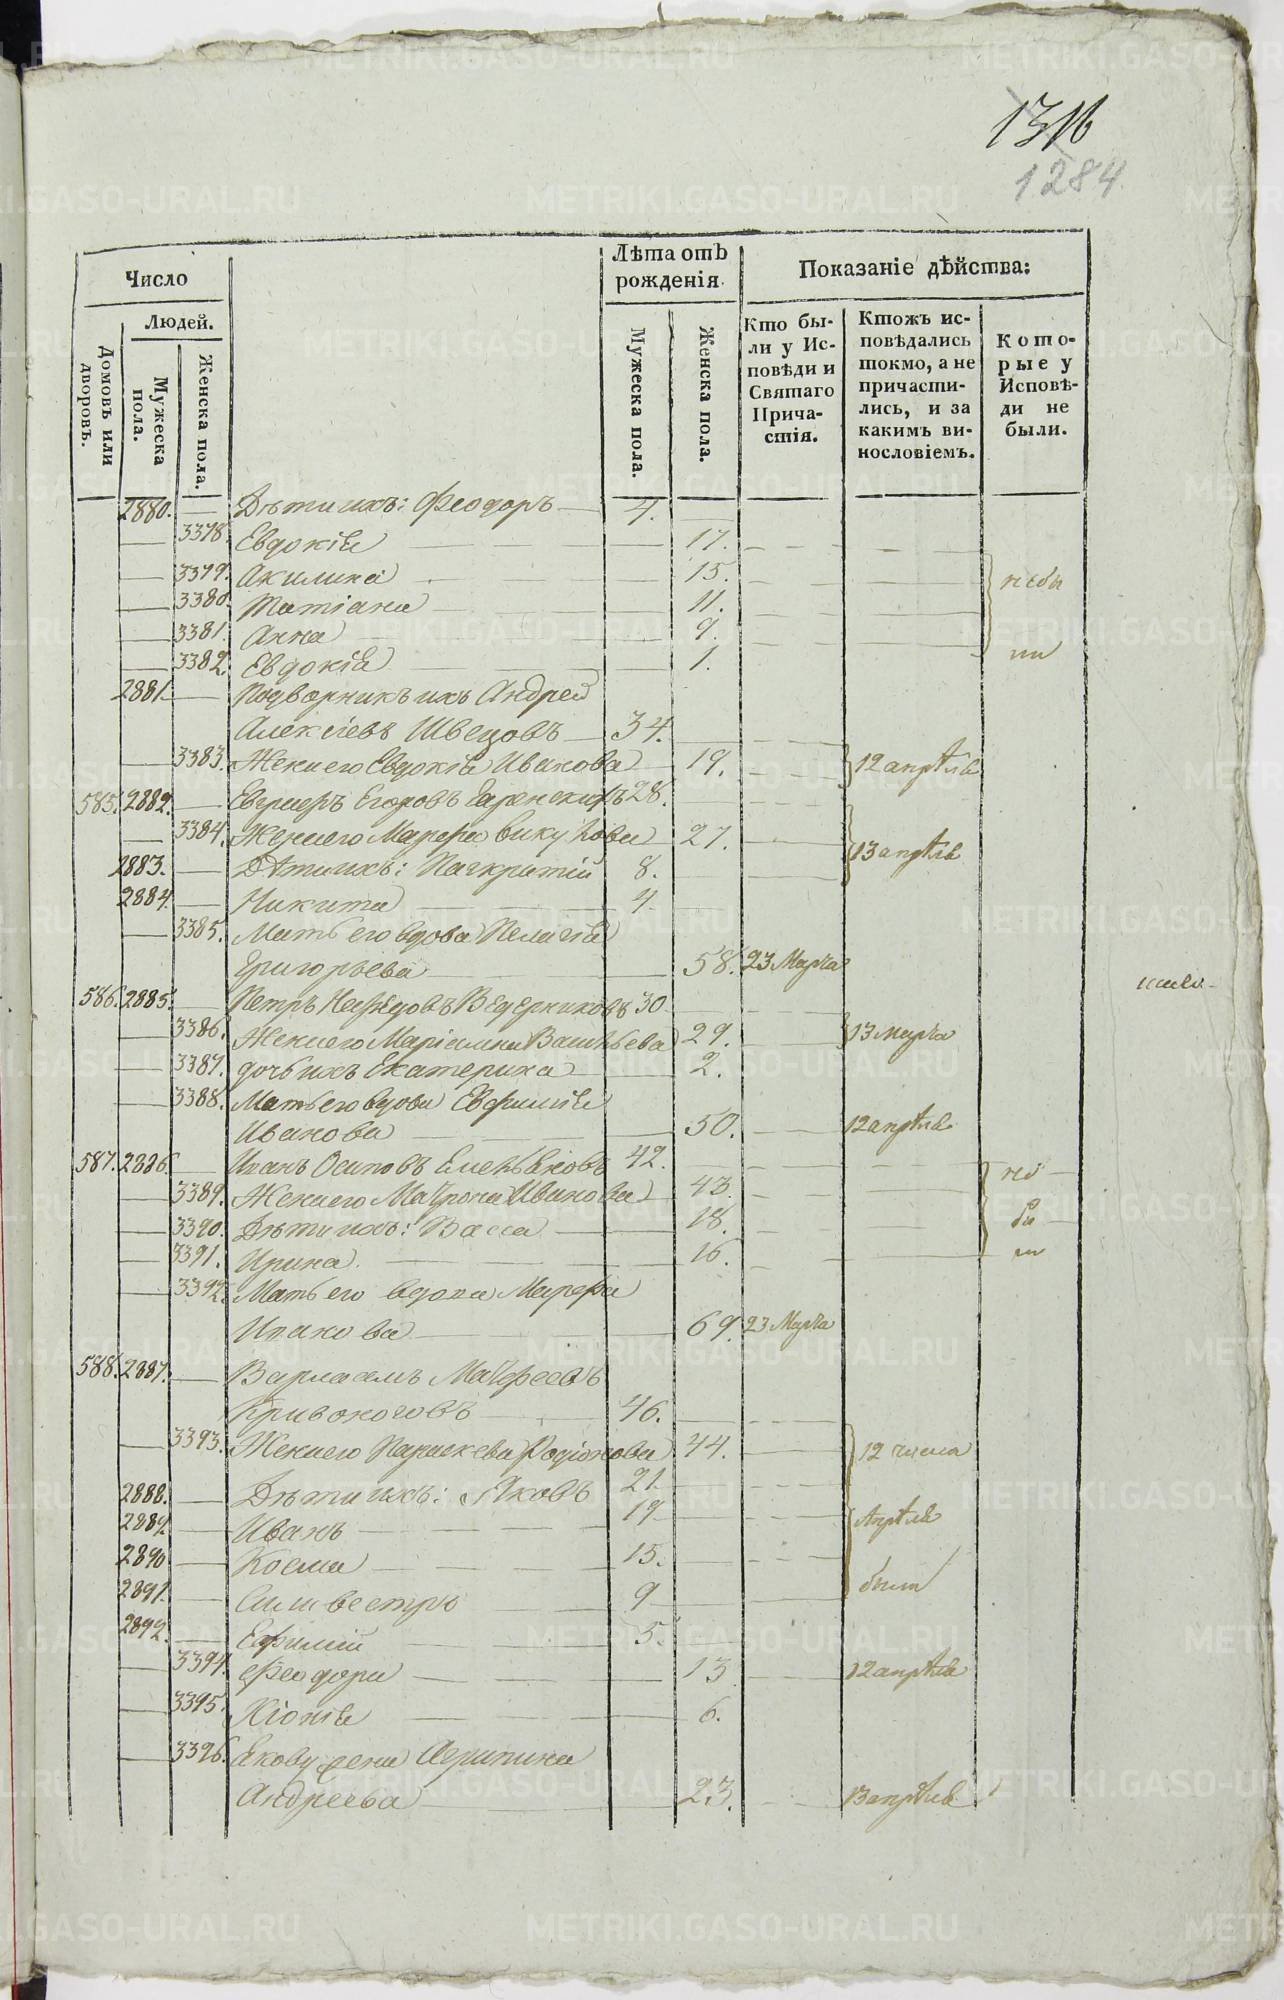 1316
1284
Число
Лѣта отъ рожденія.
Показаніе дѣйства:
Людей.
Домовъ или дворовъ.
Мужеска пола.
Женска пола.
Мужеска пола.
Женска пола.
Кто бы-
ли у Ис-
повѣди и
Святаго
Прича-
стія.
Ктожъ ис-
повѣдались
токмо, а не
причасти-
лись, и за
какимъ ви-
нословіемъ.
Кото-
рые у
Исповѣ-
ди не
были.
2880. Дѣти ихъ: Феодоръ 4.
3378. Евдокія 17.
3379. Акилина 15. небы
3380. Татіана 11.
3381. Анна 9.
3382. Евдокія 1. ли
2881. Подворникъ ихъ Андрей
Алексіевъ Швецовъ 34.
3383. Жена его Евдокія Иванова 19. 12 апрѣля
585. 2882. Егоровъ 28.
3384. Жена его Марфа Викулова 27. 13 апрѣля
2883. Дѣти ихъ: Панкратій 8.
2884. Никита 4
3385. Мать его вдова Пелагія
Григорьева 58. 23 Марта
586. 2885. Петръ Ведерниковъ 30
3386. Жена его Маріамна Васильева 29. 13 марта
3387. дочь ихъ Екатерина 2.
3388. Мать его вдова Евфимія
Иванова 50. 12 апрѣля
587. 2886. Иванъ Осиповъ Емельяновъ 42. не
3389. Жена его Матрона Иванова 43.
3390. Дѣти ихъ: Васса 18. бы
3391. Ирина 16. ли
3392. Мать его вдова Марфа
Иванова 69. 23 Марта
588. 2887. Варлаамъ Матфеевъ
Кривоноговъ 46.
3393. Жена его Параскева Родіонова 44. 12 числа
2888. Дѣти ихъ: Яковъ 21
2889. Иванъ 19 Апрѣля
2890. Косма 15.
2891. Силивестръ 9 были
2892. Ефимій 5.
3394. Феодора 13 12 апрѣля
3395. Хіонія 6.
3396. Якову жена Агрипина
Андреева 23. 13 апрѣля
METRIKI.GASO-URAL.RU